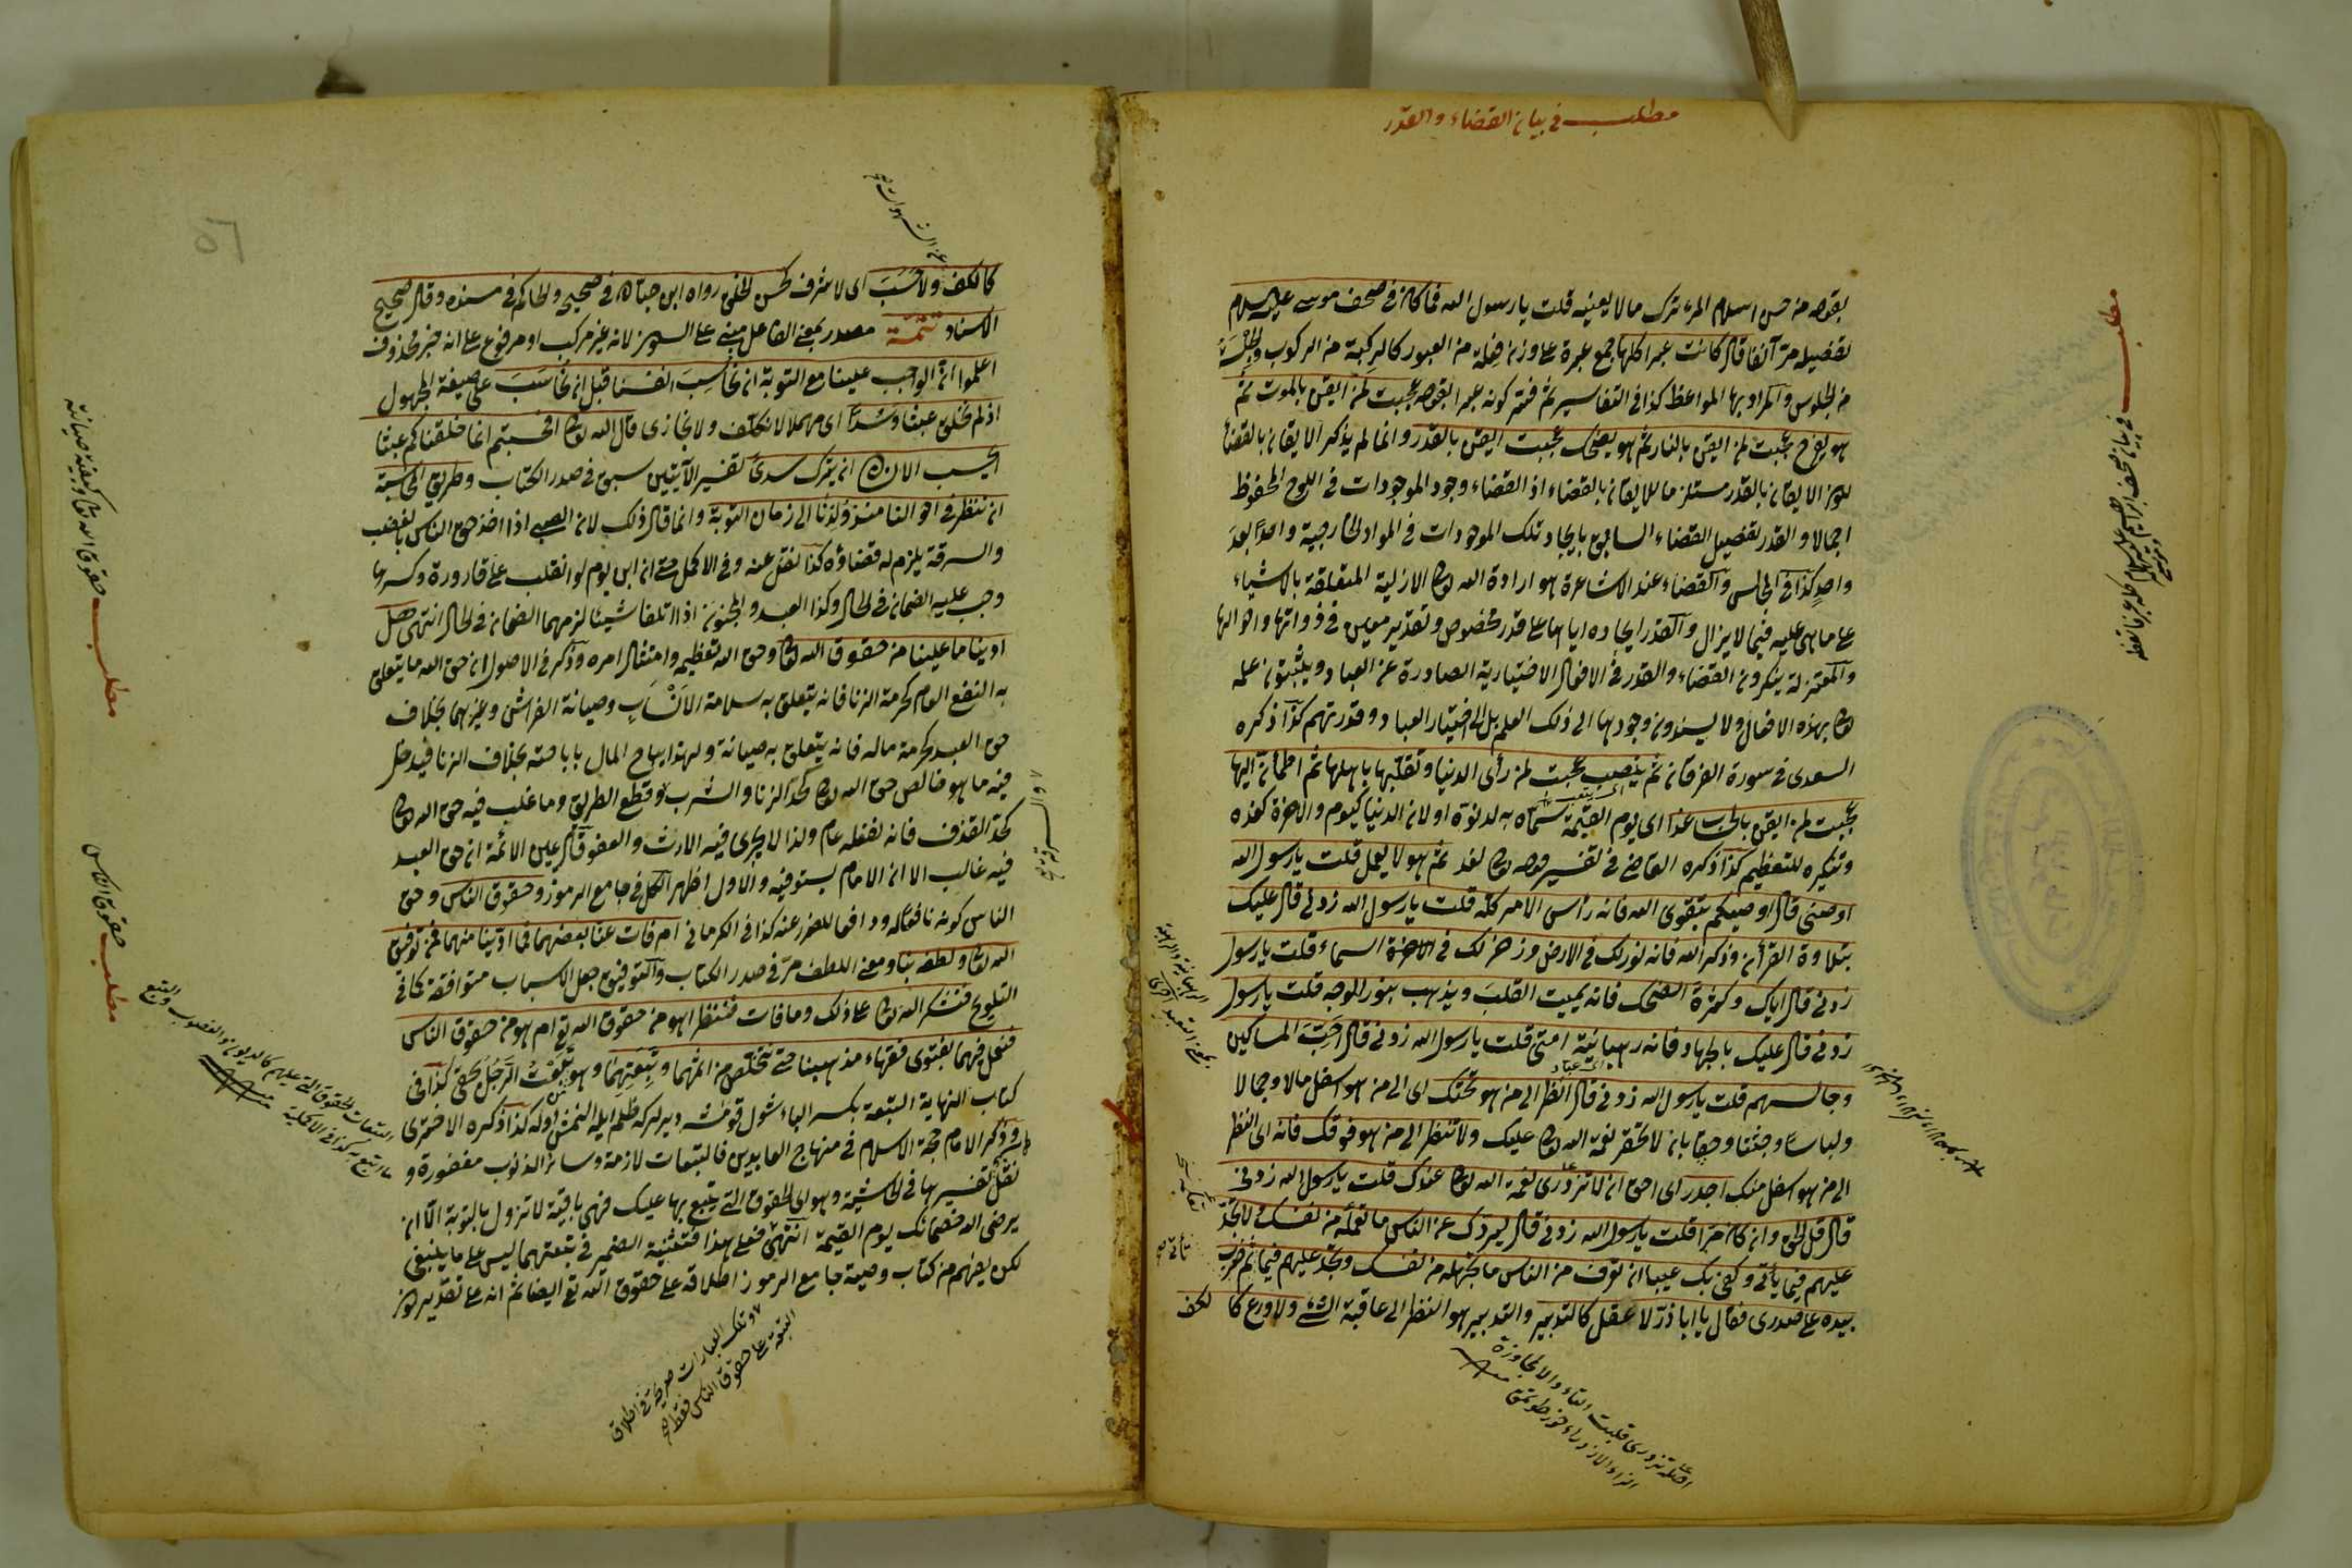 مطلب في بيان القضاء والقدر
بقوله من حسن اسلام المرء تركه مالا يعنيه قلت يا رسول الله فما كان في صحف موسى عليه السلام
تفصيله مرّ آنفا قال كانت عبرا كلها جمع عبرة على وزن فعلة من العبور كالركبة من الركوب والجلسة
من الجلوس والمراد بها المواعظ كذا في التفاسير ثم فسّر كونه عبرا بقوله عجبت لمن ايقن بالموت ثم
هو يفرح عجبت لمن ايقن بالنار ثم هو يضحك عجبت لمن ايقن بالقدر وانما لم يذكر الايقان بالقضاء
لان الايقان بالقدر مستلزم للايقان بالقضاء اذ القضاء وجود الموجودات في اللوح المحفوظ
اجمالا والقدر تفصيل القضاء السابق بايجاد تلك الموجودات في المواد الخارجية واحدا بعد
واحد كذا في المجالس والقضاء عند الاشاعرة هو ارادة الله تعالى الازلية المتعلقة بالاشياء
على ما هي عليه فيما لا يزال والقدر ايجاده اياها على قدر مخصوص وتقدير معين في ذواتها واحوالها
والمعتزلة ينكرون القضاء والقدر في الافعال الاختيارية الصادرة عن العباد ويثبتون علمه
تعالى بهذه الافعال ولا يسندون وجودها الى ذلك العلم بل الى اختيار العباد وقدرتهم كذا ذكره
السعدى في سورة الفرقان ثم ينصب عجبت لمن رأى الدنيا وتقلبها باهلها ثم اطمأن اليها
عجبت لمن ايقن بالحساب غدا اى يوم القيمة سماه به لدنوّه او لان الدنيا كيوم والآخرة كغده
وتنكيره للتعظيم كذا ذكره القاضي في تفسير قوله تعالى لغد ثم هو لا يعمل قلت يا رسول الله
اوصنى قال اوصيكم بتقوى الله فانه رأس الامر كله قلت يا رسول الله زدنى قال عليك
بتلاوة القرأن وذكر الله فانه نور لك في الارض وذخر لك في السماء قلت يا رسول
زدنى قال اياك وكثرة الضحك فانه يميت القلب ويذهب بنور الوجه قلت يا رسول
زدنى قال عليك بالجهاد فانه رهبانية امتى قلت يا رسول الله زدنى قال احبّ المساكين
وجالسهم قلت يا رسول الله زدنى قال انظر الى من هو تحتك اى الى من هو اسفل مالا وجمالا
ولباسا ولا تنظر الى من هو فوقك فانه اى النظر
الى من هو اسفل منك اجدر اى احق ان لا تزدرى نعمة الله تعالى عندك قلت يا رسول الله زدنى
قال قل الحق وان كان مرّا قلت يا رسول الله زدنى قال ليردك عن الناس ما تعلمه من نفسك لا تجد
عليهم فيما يأتى وكفى بك عيبا ان تعرف من الناس ما تجهله من نفسك وتجد عليهم فيما ثم ضرب
بيده على صدرى فقال يا اباذرّ لا عقل كالتدبير والتدبير هو النظر الى عاقبة الشئ ولا ورع كا
لكف
مطلب في بيان صحف ابراهيم
كالكف ولا حسب اى لا شرف كحسن الخلق رواه ابن حبان في صحيحه والحاكم في مسنده وقال صحيح
الاسناد تتمّة مصدر بمعنى الفاعل مبنى على السكون لانه غير مركب او مرفوع على انه خبر محذوف
اعلموا انّ الواجب علينا مع التوبة ان نحاسب انفسنا قبل ان نحاسب على صيغة المجهول
اذ لم نخلق عبثا وسدًا اى مهملا لا نكلف ولا نجازى قال الله تعالى افحسبتم انما خلقناكم عبثا
ايحسب الانسان ان يترك سدى تفسير الآيتين سبق في صدر الكتاب وطريق المحاسبة
ان ننظر في احوالنا منذ ولدنا الى زمان التوبة وانما قال ذلك لان الصبى اذا اخذ حق الناس بالغصب
والسرقة يلزم له قضاؤه كذا نقل عنه وفي الاكمل حتى ان ابن يوم لو انقلب على قارورة وكسرها
وجب عليه الضمان في الحال وكذا العبد والمجنون اذا اتلفا شيئا لزمهما الضمان في الحال انتهى هل
ادينا ما علينا من حقوق الله تعالى وحق الله تعظيمه وامتثال امره وذكر في الاصول ان حق الله ما يتعلق
به النفع العام كحرمة الزنا فانه يتعلق به سلامة الانساب وصيانة الفراش وغيرهما بخلاف
حق العبد كحرمة ماله فانه يتعلق به صيانة ولهذا يباح المال باباحته بخلاف الزنا فيدخل
فيه ما هو خالص حق الله تعالى كحد الزنا والشرب وقطع الطريق وما غلب فيه حق الله تعالى
كحد القذف فانه نفعله عام ولذا لا يجرى فيه الارث والعفو قال عين الائمة ان حق العبد
فيه غالب الا ان الامام يستوفيه والاول اظهر الكل في جامع الرموز وحقوق الناس وحق
الناس كونه نافعا له ودافعا للضرر عنه كذا في الكرمانى ام فات عنا بعضهما فما ادّينا منهما فمن توفيق
الله تعالى ولطفه بنا ومعنى اللطف مرّ في صدر الكتاب والتوفيق جعل الاسباب متوافقة كما في
التلويح فنشكر الله تعالى على ذلك وما فات فننظر اهو من حقوق الله تع ام هو من حقوق الناس
فنعمل فيهما بفتوى فقهاء مذهبنا حتى نتخلص من اثمهما وتبعتهما وهو من تبعت الرجل بحقى كذا في
كتاب النهاية التبعة بكسر الباء كذا ذكره الاخترى
وذكر الامام حجة الاسلام في منهاج العابدين فالتبعات لازمة وسائر الذنوب مغفورة و
نقل تفسيرها في الحاشية وهو اى الحقوق التى يتبع بها عليك فهى باقية لا تزول بالتوبة الّا ان
يرضى الله خصمائك يوم القيمة انتهى فعلى هذا فتثنية الضمير في تبعتهما ليس على ما ينبغى
لكن يفهم من كتاب وصيه جامع الرموز اطلاقه على حقوق الله تع ايضا ثم انه على تقدير كون
وتلك العبارات صريحة في اطلاق
التبعة على حقوق الناس فقط
مطلب حقوق الله تعالى وكيفية صيانته
مطلب حقوق الناس